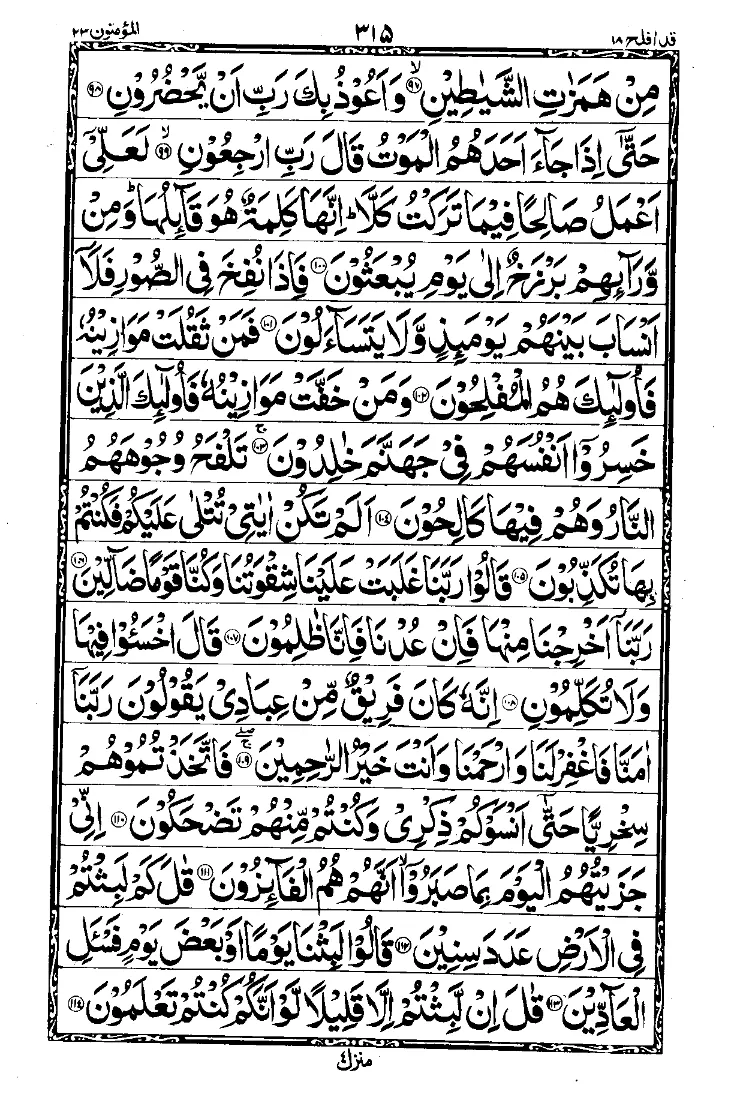 قد افلح ۱۸ ۳۱۵ المؤمنون ۲۳
مِنْ هَمَزٰتِ الشَّيٰطِيْنِ ۙ﴿۹۷﴾ وَاَعُوْذُ بِكَ رَبِّ اَنْ يَّحْضُرُوْنِ ﴿۹۸﴾
حَتّٰٓى اِذَا جَآءَ اَحَدَهُمُ الْمَوْتُ قَالَ رَبِّ ارْجِعُوْنِ ۙ﴿۹۹﴾ لَعَلِّىْٓ
اَعْمَلُ صَالِحًا فِيْمَا تَرَكْتُ كَلَّا ؕ اِنَّهَا كَلِمَةٌ هُوَ قَآئِلُهَا ؕ وَمِنْ
وَّرَآئِهِمْ بَرْزَخٌ اِلٰى يَوْمِ يُبْعَثُوْنَ ﴿۱۰۰﴾ فَاِذَا نُفِخَ فِى الصُّوْرِ فَلَآ
اَنْسَابَ بَيْنَهُمْ يَوْمَئِذٍ وَّلَا يَتَسَآءَلُوْنَ ﴿۱۰۱﴾ فَمَنْ ثَقُلَتْ مَوَازِيْنُهٗ
فَاُولٰٓئِكَ هُمُ الْمُفْلِحُوْنَ ﴿۱۰۲﴾ وَمَنْ خَفَّتْ مَوَازِيْنُهٗ فَاُولٰٓئِكَ الَّذِيْنَ
خَسِرُوْٓا اَنْفُسَهُمْ فِىْ جَهَنَّمَ خٰلِدُوْنَ ۚ﴿۱۰۳﴾ تَلْفَحُ وُجُوْهَهُمُ
النَّارُ وَهُمْ فِيْهَا كَالِحُوْنَ ﴿۱۰۴﴾ اَلَمْ تَكُنْ اٰيٰتِىْ تُتْلٰى عَلَيْكُمْ فَكُنْتُمْ
بِهَا تُكَذِّبُوْنَ ﴿۱۰۵﴾ قَالُوْا رَبَّنَا غَلَبَتْ عَلَيْنَا شِقْوَتُنَا وَكُنَّا قَوْمًا ضَآلِّيْنَ ﴿۱۰۶﴾
رَبَّنَآ اَخْرِجْنَا مِنْهَا فَاِنْ عُدْنَا فَاِنَّا ظٰلِمُوْنَ ﴿۱۰۷﴾ قَالَ اخْسَئُوْا فِيْهَا
وَلَا تُكَلِّمُوْنِ ﴿۱۰۸﴾ اِنَّهٗ كَانَ فَرِيْقٌ مِّنْ عِبَادِىْ يَقُوْلُوْنَ رَبَّنَآ
اٰمَنَّا فَاغْفِرْ لَنَا وَارْحَمْنَا وَاَنْتَ خَيْرُ الرّٰحِمِيْنَ ۚۖ﴿۱۰۹﴾ فَاتَّخَذْتُمُوْهُمْ
سِخْرِيًّا حَتّٰٓى اَنْسَوْكُمْ ذِكْرِىْ وَكُنْتُمْ مِّنْهُمْ تَضْحَكُوْنَ ﴿۱۱۰﴾ اِنِّىْ
جَزَيْتُهُمُ الْيَوْمَ بِمَا صَبَرُوْٓا ۙ اَنَّهُمْ هُمُ الْفَآئِزُوْنَ ﴿۱۱۱﴾ قٰلَ كَمْ لَبِثْتُمْ
فِى الْاَرْضِ عَدَدَ سِنِيْنَ ﴿۱۱۲﴾ قَالُوْا لَبِثْنَا يَوْمًا اَوْ بَعْضَ يَوْمٍ فَسْئَلِ
الْعَآدِّيْنَ ﴿۱۱۳﴾ قٰلَ اِنْ لَّبِثْتُمْ اِلَّا قَلِيْلًا لَّوْ اَنَّكُمْ كُنْتُمْ تَعْلَمُوْنَ ﴿۱۱۴﴾
منزل ۴